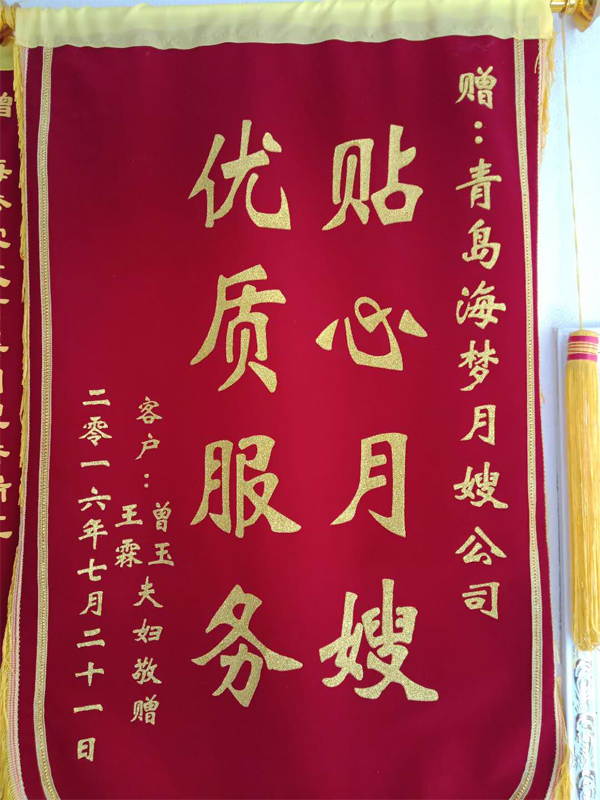 赠：青岛海梦月嫂公司
贴心月嫂
优质服务
客户：曾玉 王霖 夫妇敬赠
二零一六年七月二十一日